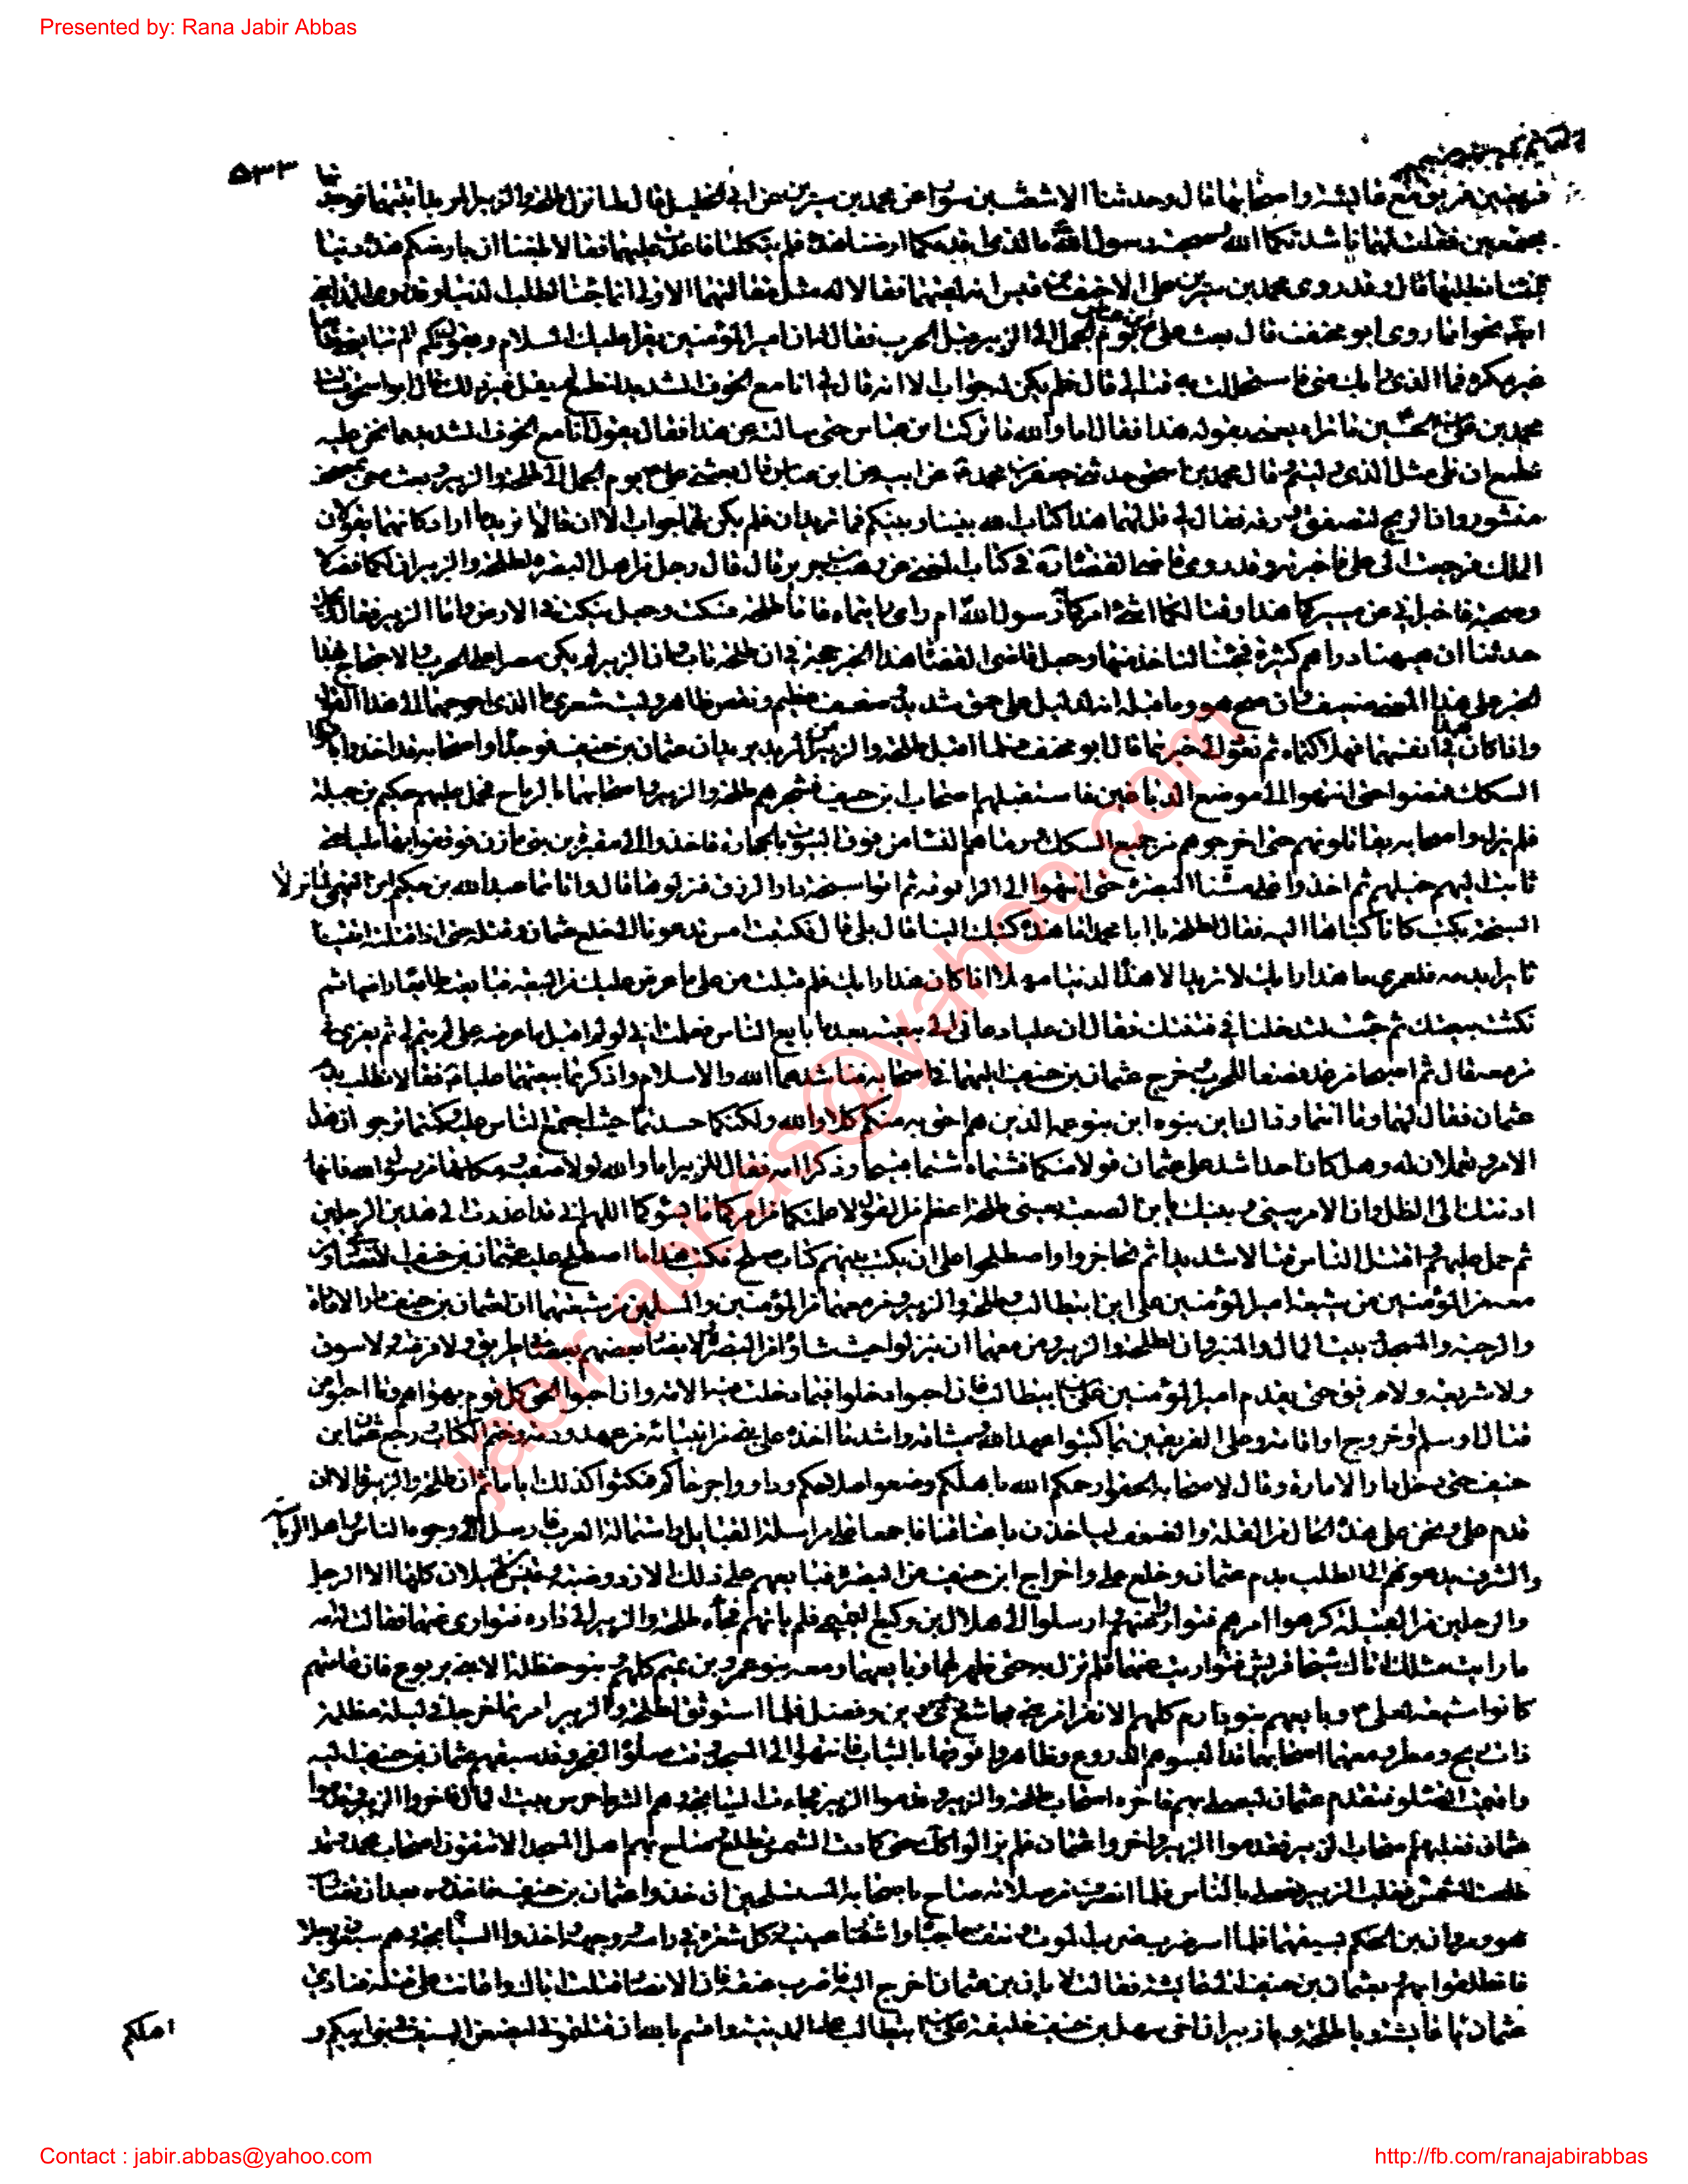 Presented by: Rana Jabir Abbas
٥٣٣
فقلت لهما ناشدتكما الله وصحبة رسول الله ما الذي اقدمكما ارضنا هذه فلم يتكلما فاعدت عليهما فقالا بلغنا ان بارضكم هذه دنيا
فجئنا نطلبها قال وقد روى محمد بن سيرين عن الاحنف بن قيس انه لقيهما فقالا له مثل مقالتهما الاولى انما جئنا لطلب الدنيا وقد روى المدايني
ايضا نحوا مما روى ابو مخنف قال بعث علي ع ابن عباس يوم الجمل الى الزبير قبل الحرب فقال له ان امير المؤمنين يقرأ عليك السلام ويقول لكم الم تبايعوني طائعا
غير مكره فما الذي رابك مني فاستحللت به قتالي قال فلم يكن له جواب الا انه قال لي انا مع الخوف الشديد لنطمع لم يقل غير ذلك قال ابو اسحق فسالت
محمد بن علي بن الحسين ما تراه يعني بقوله هذا فقال اما والله ما تركت ابن عباس حتى سالته عن هذا فقال يقول انا مع الخوف الشديد مما نحن عليه
نطمع ان نلي مثل الذي وليتم وقال محمد بن اسحق حدثني جعفر بن محمد ع عن ابيه عن ابن عباس قال بعثني علي ع يوم الجمل الى طلحة والزبير وبعث معي بمصحف
منشور وان الريح لتصفق ورقه فقال لي قل لهما هذا كتاب الله بيننا وبينكم فما تريدان فلم يكن لهما جواب الا ان قالا نريد ما اراد كانهما يقولان
الملك فرجعت الى علي فاخبرته وقد روى قاضي القضاة في كتاب المغني عن وهب بن جرير قال قال رجل من اهل البصرة لطلحة والزبير ان لكما فضلا
وصحبة فاخبراني عن مسيركما هذا وقتالكما اشئ امركما به رسول الله ام راي رايتماه فاما طلحة فسكت وجعل ينكت في الارض واما الزبير فقال ويحك
حدثنا ان ههنا دراهم كثيرة فجئنا لناخذ منها وجعل قاضي القضاة هذا الخبر حجة في ان طلحة تاب وان الزبير لم يكن مصرا على الحرب والاحتجاج بهذا
الخبر على هذا المعنى ضعيف وان صح هو وما قبله انه لدليل على حمق شديد وضعف عظيم ونقص ظاهر وليت شعري ما الذي احوجهما الى هذا القول
واذا كان هذا في انفسهما فهلا كتماه ثم نعود الى خبرهما قال ابو مخنف فلما اقبل طلحة والزبير من المربد يريدان عثمان بن حنيف فوجداه واصحابه قد اخذوا بافواه
السكك فمضوا حتى انتهوا الى موضع الدباغين فاستقبلهم اصحاب ابن حنيف فشجرهم طلحة والزبير واصحابهما بالرماح فحمل عليهم حكيم بن جبلة
فلم يزل واصحابه يقاتلونهم حتى اخرجوهم من جميع السكك ورماهم النساء من فوق البيوت بالحجارة فاخذوا الى مقبرة بني مازن فوقفوا بها مليا حتى
ثابت اليهم خيلهم ثم اخذوا على مسناة البصرة حتى انتهوا الى الزابوقة ثم اتوا سبخة دار الرزق فنزلوها قال واتاهما عبد الله بن حكيم التميمي لما نزلا
السبخة بكتب كانا كتباها اليه فقال لطلحة يا ابا محمد اما هذه كتبك الينا قال بلى قال فكتبت امس تدعونا الى خلع عثمان وقتله حتى اذا قتلته اتيتنا
ثائرا بدمه فلعمري ما هذا رايك لا تريد الا هذه الدنيا مهلا اذا كان هذا رايك فلم قبلت من علي ما عرض عليك من البيعة فبايعته طائعا راضيا ثم
نكثت بيعتك ثم جئت لتدخلنا في فتنتك فقال ان عليا دعاني الى بيعته بعد ما بايع الناس فعلمت اني لو لم اقبل ما عرضه علي لم يتم لي ثم يغري بي
من معه قال ثم اصبحا من غد فصفا للحرب وخرج عثمان بن حنيف اليهما في اصحابه فناشدهما الله والاسلام واذكرهما بيعتهما عليا ع فقالا نطلب بدم
عثمان فقال لهما وما انتما وذاك اين بنوه اين بنو عمه الذين هم احق به منكم كلا والله ولكنكما حسدتماه حيث اجتمع الناس عليه وكنتما ترجوان هذا
الامر وتعملان له وهل كان احد اشد على عثمان قولا منكما فشتماه شتما قبيحا وذكرا امه فقال للزبير اما والله لولا صفية ومكانها من رسول الله فانها
ادنتك الى الظل وان الامر بيني وبينك يابن الصعبة يعني طلحة اعظم من القول لاعلمتكما من امركما ما يسؤكما اللهم اني قد اعذرت الى هذين الرجلين
ثم حمل عليهم واقتتل الناس قتالا شديدا ثم تحاجزوا واصطلحوا على ان يكتب بينهم كتاب صلح فكتب هذا ما اصطلح عليه عثمان بن حنيف الانصاري ومن
معه من المؤمنين من شيعة امير المؤمنين علي بن ابيطالب وطلحة والزبير ومن معهما من المؤمنين والمسلمين من شيعتهما ان لعثمان بن حنيف دار الامارة
والرحبة والمسجد وبيت المال والمنبر وان لطلحة والزبير ومن معهما ان ينزلوا حيث شاؤا من البصرة لا يضار بعضهم بعضا في طريق ولا فرضة ولا سوق
ولا شريعة ولا مرفق حتى يقدم امير المؤمنين علي بن ابيطالب فان احبوا دخلوا فيما دخلت فيه الامة وان احبوا لحق كل قوم بهواهم وما احبوا من
قتال او سلم او خروج او اقامة وعلى الفريقين بما كتبوا عهد الله وميثاقه واشد ما اخذه على نبي من انبيائه من عهد وذمة وختم الكتاب ورجع عثمان بن
حنيف حتى دخل دار الامارة وقال لاصحابه الحقوا رحمكم الله باهلكم وضعوا سلاحكم وداووا جرحاكم فمكثوا كذلك اياما ثم ان طلحة والزبير قالا ان
قدم علي ونحن على هذه الحال من القلة والضعف لياخذن باعناقنا فاجمعا على مراسلة القبايل واستمالة العرب فارسلا الى وجوه الناس واهل الرياسة
والشرف يدعونهم الى الطلب بدم عثمان وخلع علي واخراج ابن حنيف من البصرة فبايعهم على ذلك الازد وضبة وقيس عيلان كلها الا الرجل
والرجلين من القبيلة كرهوا امرهم فتواروا عنهم وارسلوا الى هلال بن وكيع التميمي فلم ياتهم فجاءه طلحة والزبير الى داره فتوارى عنهما فقالت له امه
ما رايت مثلك اتاك شيخا قريش فتواريت عنهما فلم تزل به حتى ظهر لهما وبايعهما ومعه بنو عمرو بن تميم كلهم وبنو حنظلة الا بني يربوع فان عامتهم
كانوا شيعة لعلي ع وبايعهم بنو دارم كلهم الا نفرا من بني مجاشع ذوي دين وفضل فلما استوثق لطلحة والزبير امرهما خرجا في ليلة مظلمة
ذات ريح ومطر ومعهما اصحابهما قد البسوهم الدروع وظاهروا فوقها بالثياب فانتهوا الى المسجد وقت صلوة الفجر وقد سبقهم عثمان بن حنيف اليه
واقيمت الصلوة فتقدم عثمان ليصلي بهم فاخره اصحاب طلحة والزبير وقدموا الزبير فجاءت السيابجة وهم الشرط حرس بيت المال فاخروا الزبير وقدموا
عثمان فغلبهم اصحاب الزبير فقدموا الزبير واخروا عثمان فلم يزالوا كذلك حتى كادت الشمس تطلع وصاح بهم اهل المسجد الا تتقون اصحاب محمد وقد
طلعت الشمس فغلب الزبير فصلى بالناس فلما انصرف من صلاته صاح باصحابه المستسلحين ان خذوا عثمان بن حنيف فاخذوه بعد ان تضارب
هو ومروان بن الحكم بسيفيهما فلما اسر ضرب ضرب الموت ونتف حاجباه واشفار عينيه وكل شعرة في راسه ووجهه واخذوا السيابجة وهم سبعون رجلا
فانطلقوا بهم وبعثمان بن حنيف الى عايشة فقالت لابان بن عثمان اخرج اليه فاضرب عنقه فان الانصار قتلت اباك واعانت على قتله فنادى
عثمان يا عايشة ويا طلحة ويا زبير ان اخي سهل بن حنيف خليفة علي بن ابيطالب على المدينة واقسم بالله ان قتلتموني ليضعن السيف في بني ابيكم و
اهلكم
jabir.abbas@yahoo.com
Contact : jabir.abbas@yahoo.com
http://fb.com/ranajabirabbas